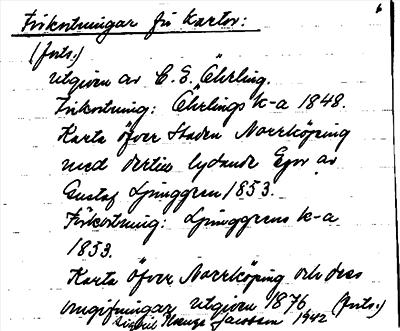 Förkortningar för kartor:
6
(forts.)
utgiven av C. E. Öhrling.
Förkortning: Öhrlings k-a 1848.
Karta öfver Staden Norrköping
med dertill lydande Egor av
Gustaf Ljunggren 1853.
Förkortning: Ljunggrens k-a
1853.
Karta öfver Norrköping och dess
omgifningar utgiven 1876 (forts.)
Jacobson 1942